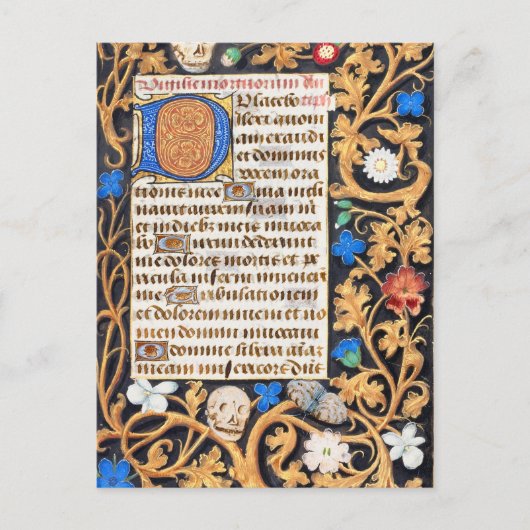 Vigilie mortuorum an
Placebo
Dilexi quoni
exaudi
et dominus
vocem ora
tionis mee Quia incli
nauit aurem suam m
et in dieb meis inuoca
bo Circumdederunt
me dolores mortis et pe
ricula inferni inuener
me Tribulationem
et dolorem inueni et no
men domini inuocaui
O domine libera aiam
meam misericors dns